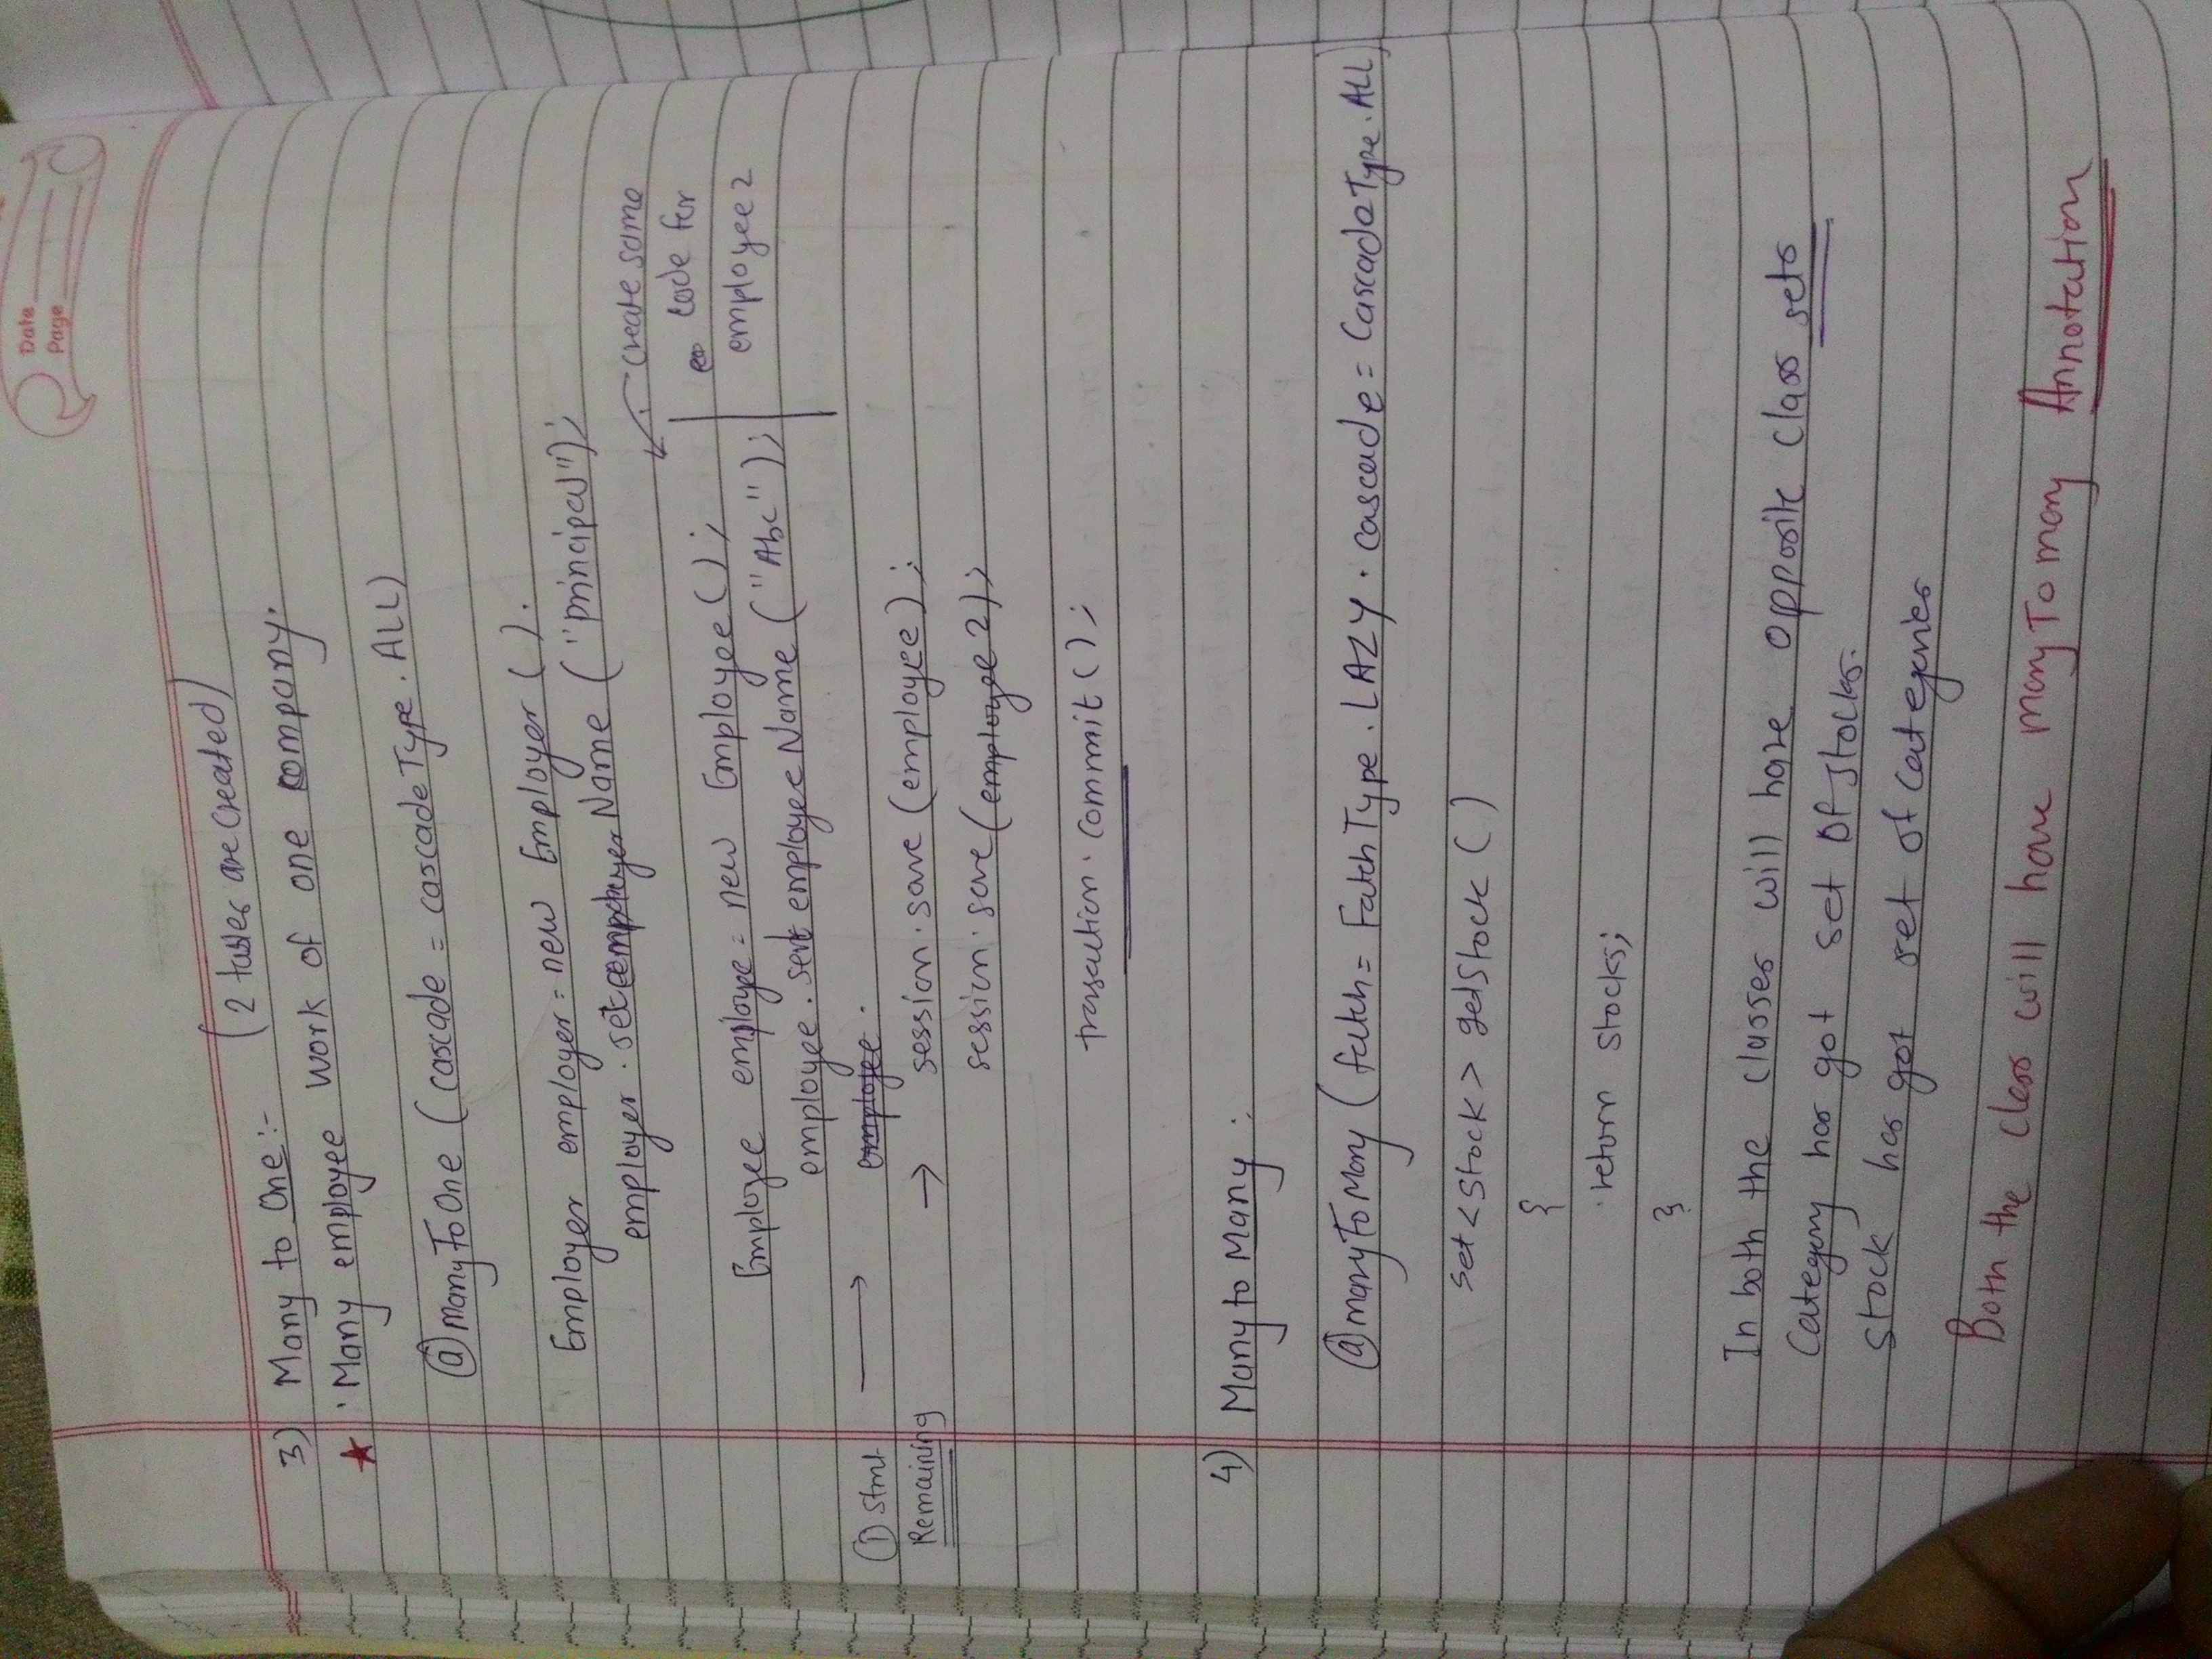 Date
Page
(2 tables are created)
3) Many to One :-
★ Many employee work of one company.
@manyToOne (cascade = cascadeType.ALL)
Employer employer = new Employer ().
employer.set Name ("principal");
create same
code for
employee 2
Employee employee = new Employee();
employee.set employeeName ("Abc");
① Stmt → employee.
Remaining → session.save (employee);
session.save (employee 2);
transaction.commit();
4) Many to Many :
@manyToMany (fatch = FatchType.LAZY . cascade = CascadeType.ALL)
set <stock> getStock ()
{
return stocks;
}
In both the classes will have opposite class sets
Category has got set of stocks.
stock has got set of categories
Both the class will have many To many Annotation